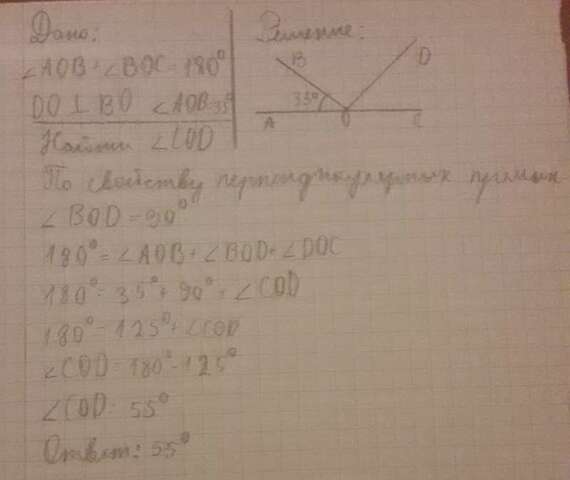 Дано:
∠AOB + ∠BOC = 180°
DO ⊥ BO ∠AOB=35°
Найти ∠COD
Решение:
B
D
35°
A
O
C
По свойству перпендикулярных прямых
∠BOD = 90°
180° = ∠AOB + ∠BOD + ∠DOC
180° = 35° + 90° + ∠COD
180° = 125° + ∠COD
∠COD = 180° - 125°
∠COD = 55°
Ответ: 55°